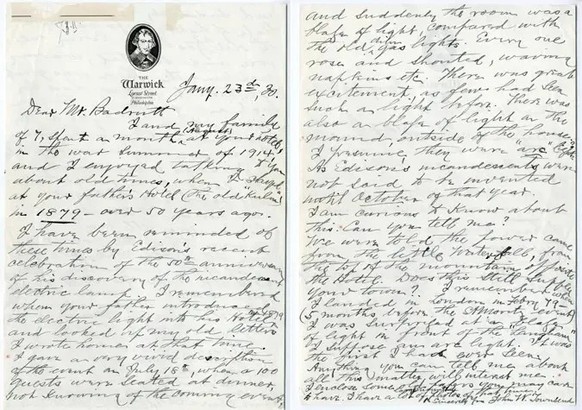 THE
Warwick
Locust Street
Philadelphia
Jany. 23rd, 30.
Dear Mr. Badrutt
I and my family
of 7, spent a month (August) at your hotel,
in the war summer of 1914
and I enjoyed talking to you
about old times, when I stayed
at your father's Hotel (the old "Kulm")
in 1879 - over 50 years ago.
I have been reminded of
these times by Edison's recent
celebration of the 50th anniversary
of his discovery of the incandescent
electric lamp. I remembered
when your father introduced
electric light into his Hotel
and looked up my old letters
I wrote home at that time.
I gave a very vivid description
of the event on July 18th, when a 100
guests were seated at dinner,
not knowing of the coming event
and suddenly the room was a
blaze of light, compared with
the old dim gas lights. Every one
rose and shouted, waving
napkins etc. There was great
excitement, as few had seen
such a light before. There was
also a blaze of light on the
ground, outside of the house.
I presume they were "arc" lights
As Edison's incandescents were
not said to be invented
until October of that year.
I am curious to know about
this. Can you tell me?
We were told the power came
from the little Waterfall, from
the top of the mountain
the Hotel. Does this still supply
your
I landed in London in Feby 79
(5 months before the St Moritz event)
I was surprised at a "blaze"
of light in front of the
I suppose an arc light. It was
the first I had ever seen.
Anything you can tell me about
all this matter will interest me.
I enclose some
to have. I have a lot
John W. Townsend